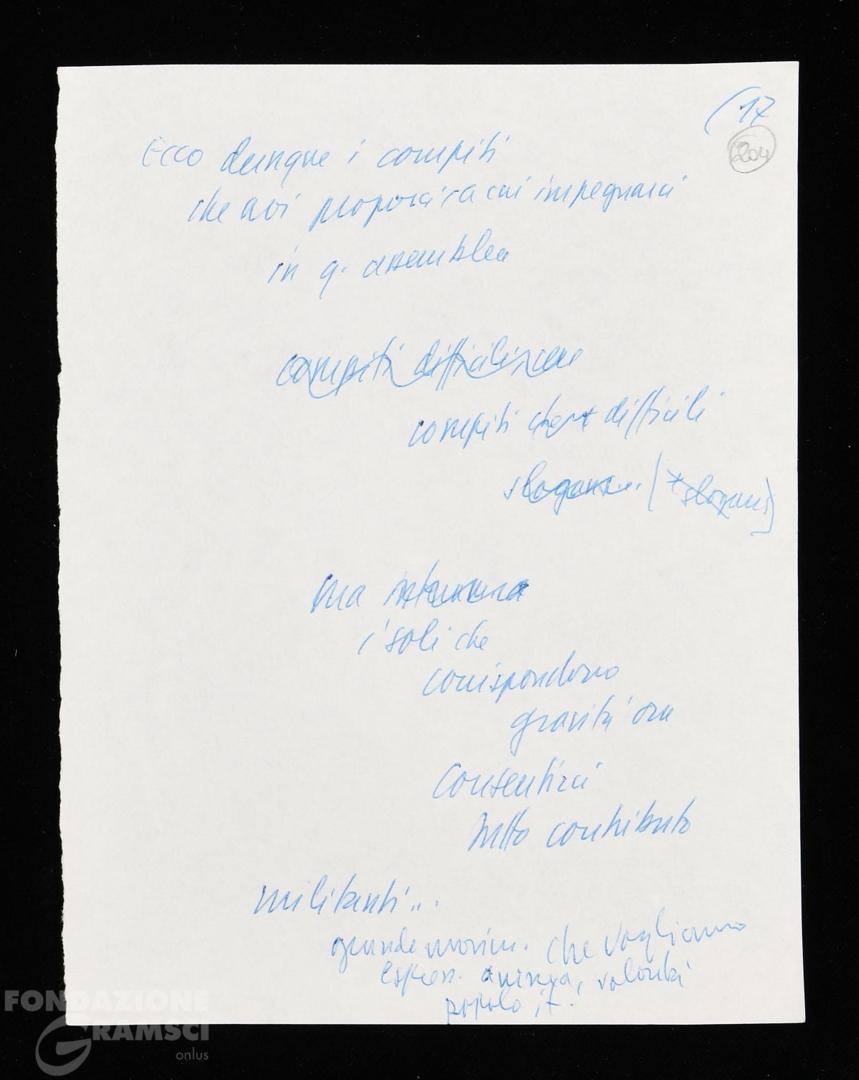 (17
204
Ecco dunque i compiti
che noi impegnarci
in q. assemblea
compiti
compiti difficili
slogans... (* slogans)
ma
i soli che
corrispondono
gravità ora
consentirci
tutto contributo
militanti...
grande movim. che vogliamo
espress. animo, volontà
popolo it.
FONDAZIONE
GRAMSCI
onlus